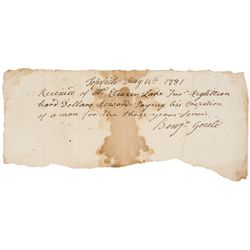 Topsfield May 4th 1781
Received of Mr Eleazer Lake Junr Eighteen
hard Dollars towards Paying his Proportion
of a man for the three years Servis
Benjn Gould